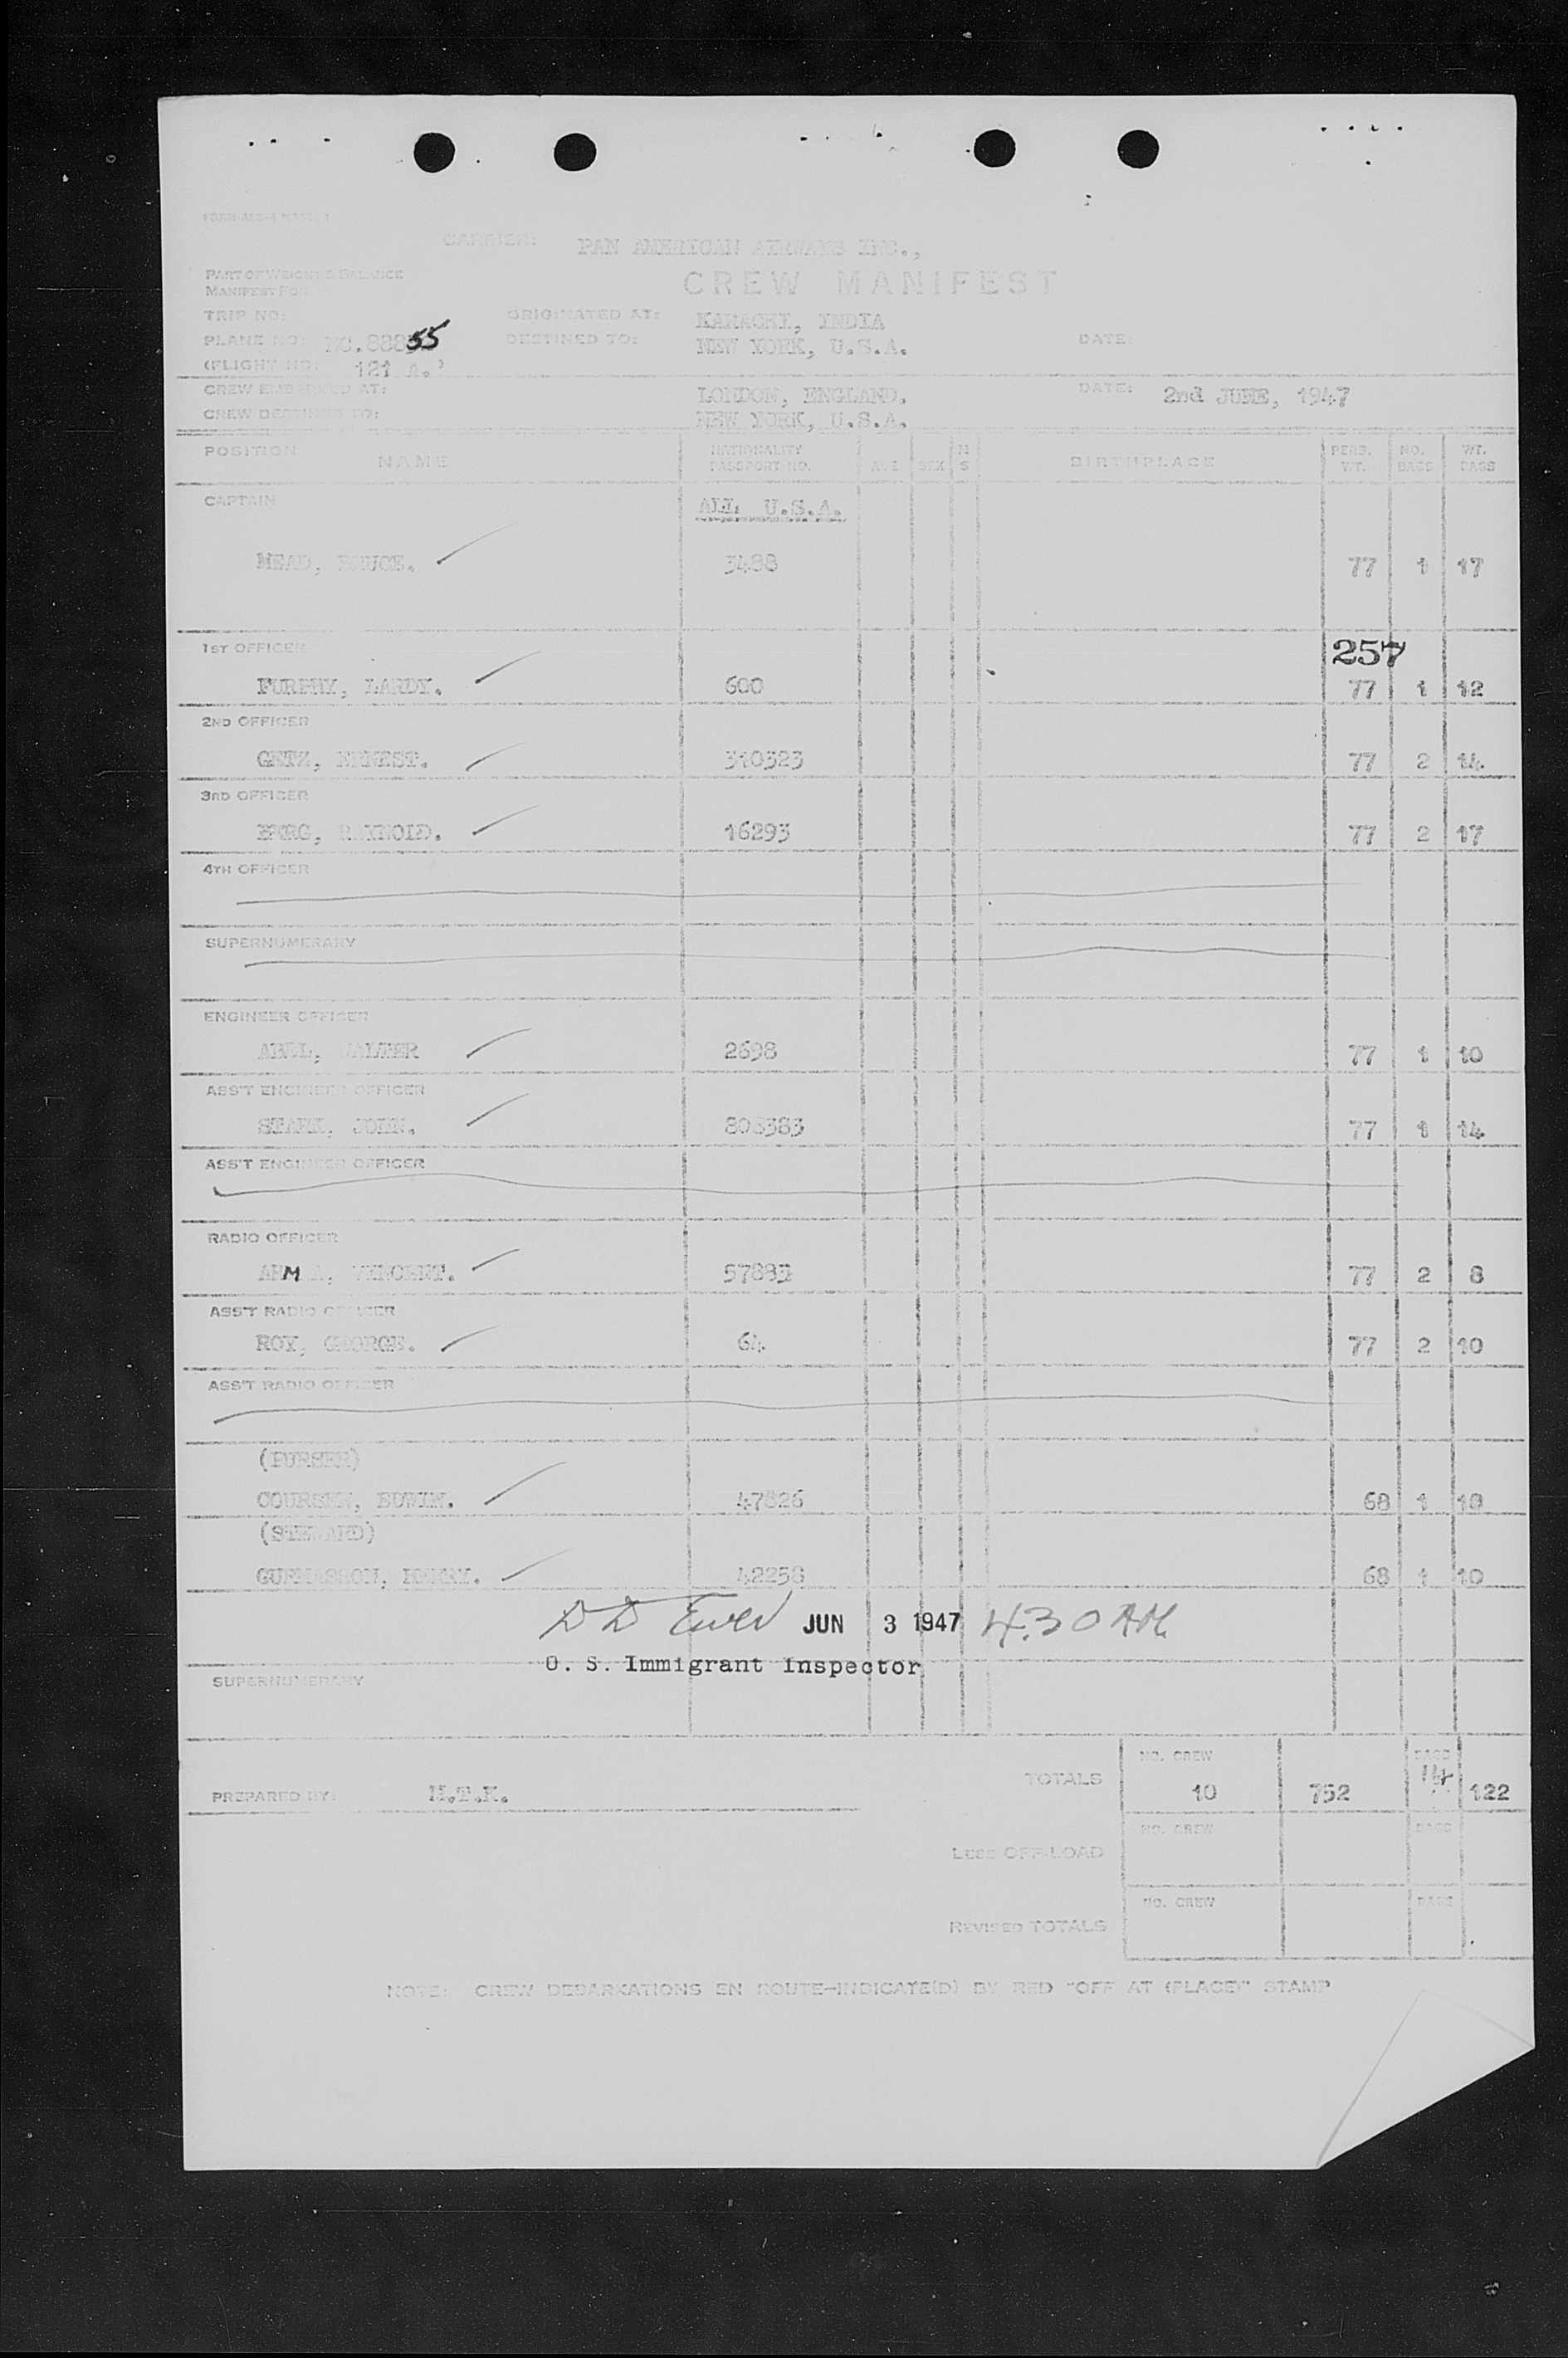 CARRIER: PAN AMERICAN AIRWAYS INC.,
PART OF WEIGHT & BALANCE
MANIFEST FOR
CREW MANIFEST
TRIP NO: ORIGINATED AT: KARACHI, INDIA
PLANE NO: NC.88855 DESTINED TO: NEW YORK, U.S.A. DATE:
(FLIGHT NO: 121 A.)
CREW EMBARKED AT: LONDON, ENGLAND. DATE: 2nd JUNE, 1947
CREW DESTINED TO: NEW YORK, U.S.A.
POSITION NAME NATIONALITY PASSPORT NO. AGE SEX M S BIRTHPLACE PERS. WT. NO. BAGS WT. BAGS
CAPTAIN ALL U.S.A.
MEAD, BRUCE. 3488 77 1 17
1ST OFFICER 257
FURPHY, 600 77 1 12
2ND OFFICER
GETZ, ERNEST. 310323 77 2 14
3RD OFFICER
16293 77 2 17
4TH OFFICER
SUPERNUMERARY
ENGINEER OFFICER
ABEL, WALTER 2698 77 1 10
ASS'T ENGINEER OFFICER
STARK, JOHN. 77 1 14
ASS'T ENGINEER OFFICER
RADIO OFFICER
VINCENT. 77 2 8
ASS'T RADIO OFFICER
ROY, GEORGE. 64 77 2 10
ASS'T RADIO OFFICER
(PURSER)
COURSEN, EDWIN. 47826 68 1 10
(STEWARD)
HARRY. 42258 68 1 10
JUN 3 1947 4.30 AM.
U. S. Immigrant Inspector
SUPERNUMERARY
TOTALS NO. CREW 10 752 BAGS 14 122
PREPARED BY:
LESS OFF-LOAD NO. CREW BAGS
REVISED TOTALS NO. CREW BAGS
NOTE: CREW DEBARKATIONS EN ROUTE—INDICATE(D) BY RED "OFF AT (PLACE)" STAMP